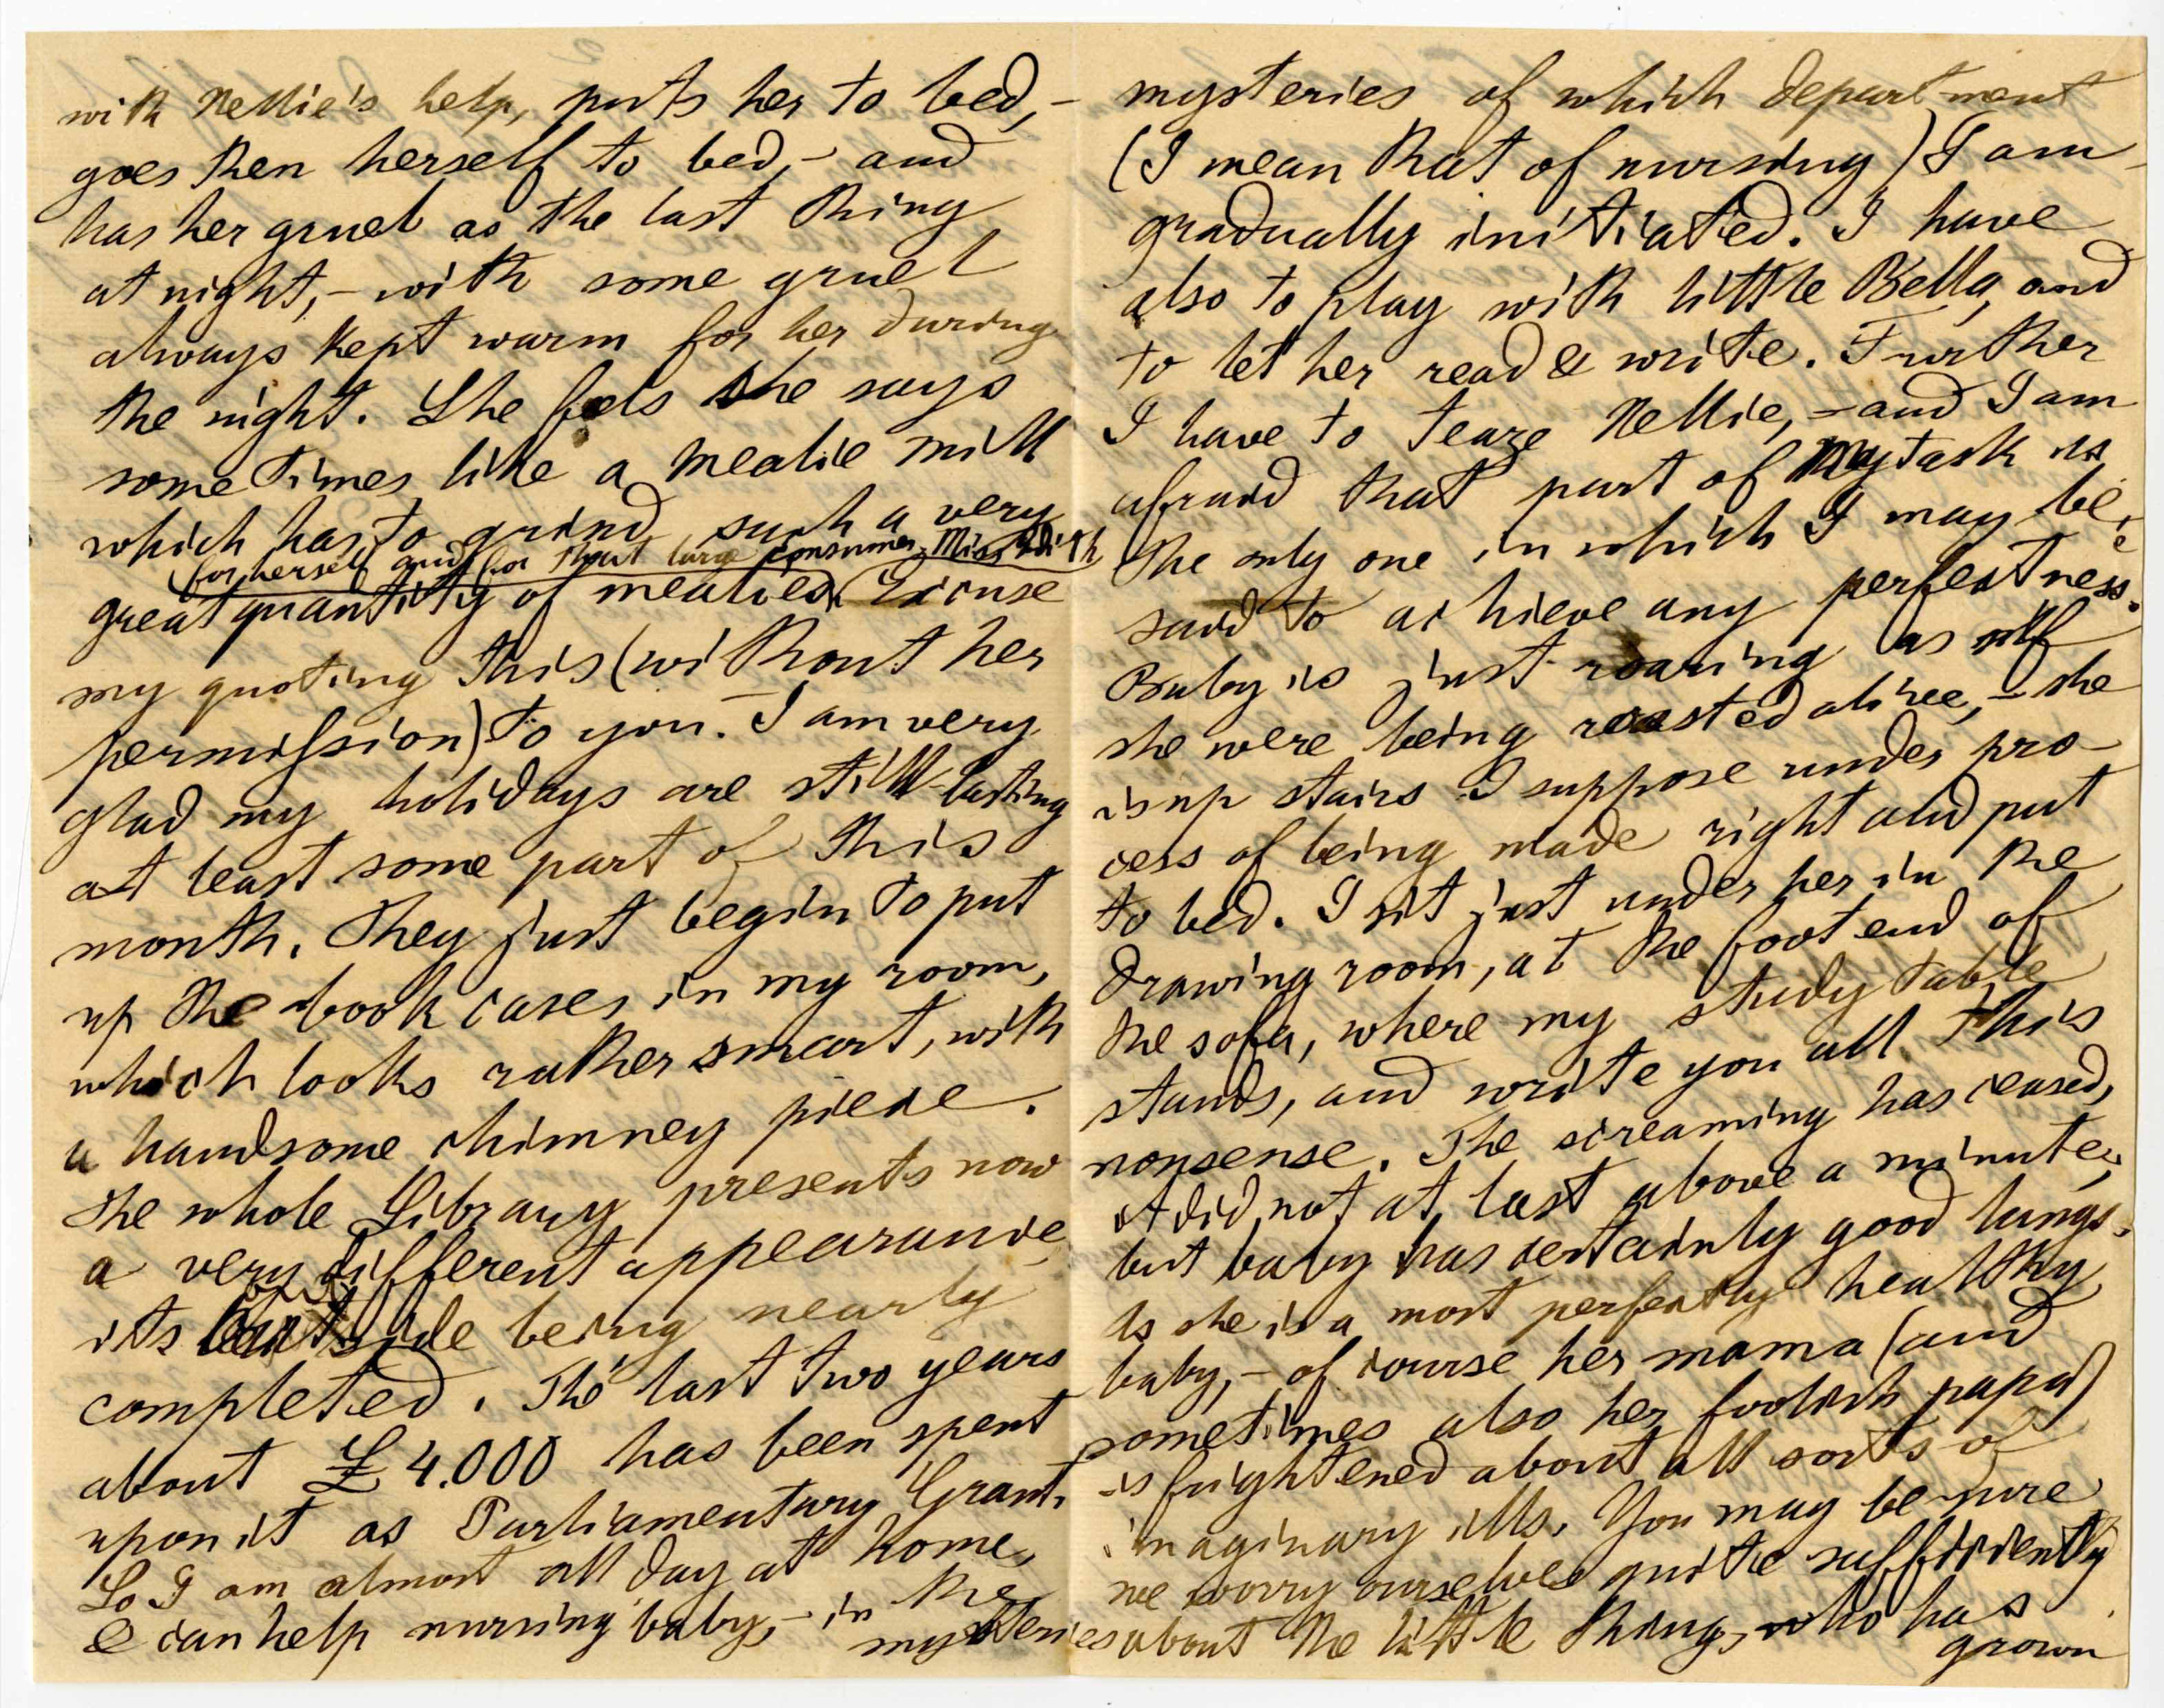 with Nellie's help, puts her to bed, –
goes then herself to bed, – and
has her gruel as the last thing
at night, – with some gruel
always kept warm for her during
the night. She feels she says
sometimes like a mealie mill
which has to grind such a very
(for herself and for that large consumer, Miss Edith
great quantity of mealies. Excuse
my quoting this (without her
permission) to you. – I am very
glad my holidays are still lasting
at least some part of this
month. They just begin to put
up the book cases in my room,
which looks rather smart, with
a handsome chimney piece.
The whole Library presents now
a very different appearance,
out
its side being nearly
completed. Tho' last two years
about £ 4.000 has been spent
upon it as Parliamentary Grant.
So I am almost all day at home,
& can help nursing baby, – in the
mysteries
mysteries of which department
(I mean that of nursing) I am
gradually initiated. I have
also to play with little Bella, and
to let her read & write. Further
I have to teaze Nellie, – and I am
afraid that part of my task is
the only one in which I may be
said to achieve any perfectness.
Baby is just roaring as if
she were being roasted alive, – she
is up stairs I suppose under pro-
cess of being made right and put
to bed. I sit just under her in the
drawing room, at the foot end of
the sofa, where my study table
stands, and write you all this
nonsense. The screaming has ceased,
it did not at last above a minute,
but baby has certainly good lungs.
As she is a most perfectly healthy
baby, – of course her mama (and
sometimes also her foolish papa)
is frightened about all sorts of
imaginary ills. You may be sure
we worry ourselves quite sufficiently
about the little thing, who has
grown